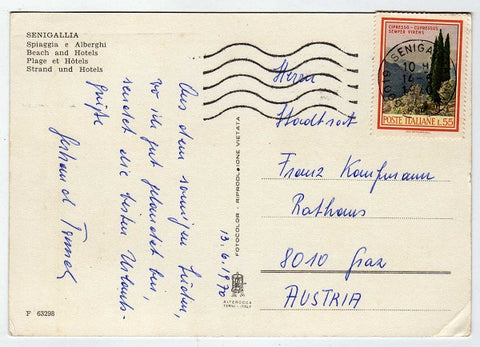 SENIGALLIA
Spiaggia e Alberghi
Beach and Hotels
Plage et Hôtels
Strand und Hotels
Aus dem sonnigen Süden,
wo ich gut gelandet bin,
sendet die besten Urlaubs-
grüße
Gerhard
13.6.1970
F 63298
FOTOCOLOR - RIPRODUZIONE VIETATA
ALTEROCCA
TERNI - ITALY
CIPRESSO - CUPRESSUS
SEMPER VIRENS
POSTE ITALIANE L.55
SENIGAL
10 H
14-6
Herrn
Stadtrat
Franz Kaufmann
Rathaus
8010 Graz
AUSTRIA